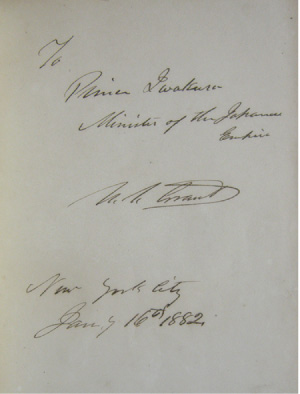 To
Prince Iwakura
Minister of the Japanese
Empire
U. S. Grant
New York City
Jany 16th 1882.